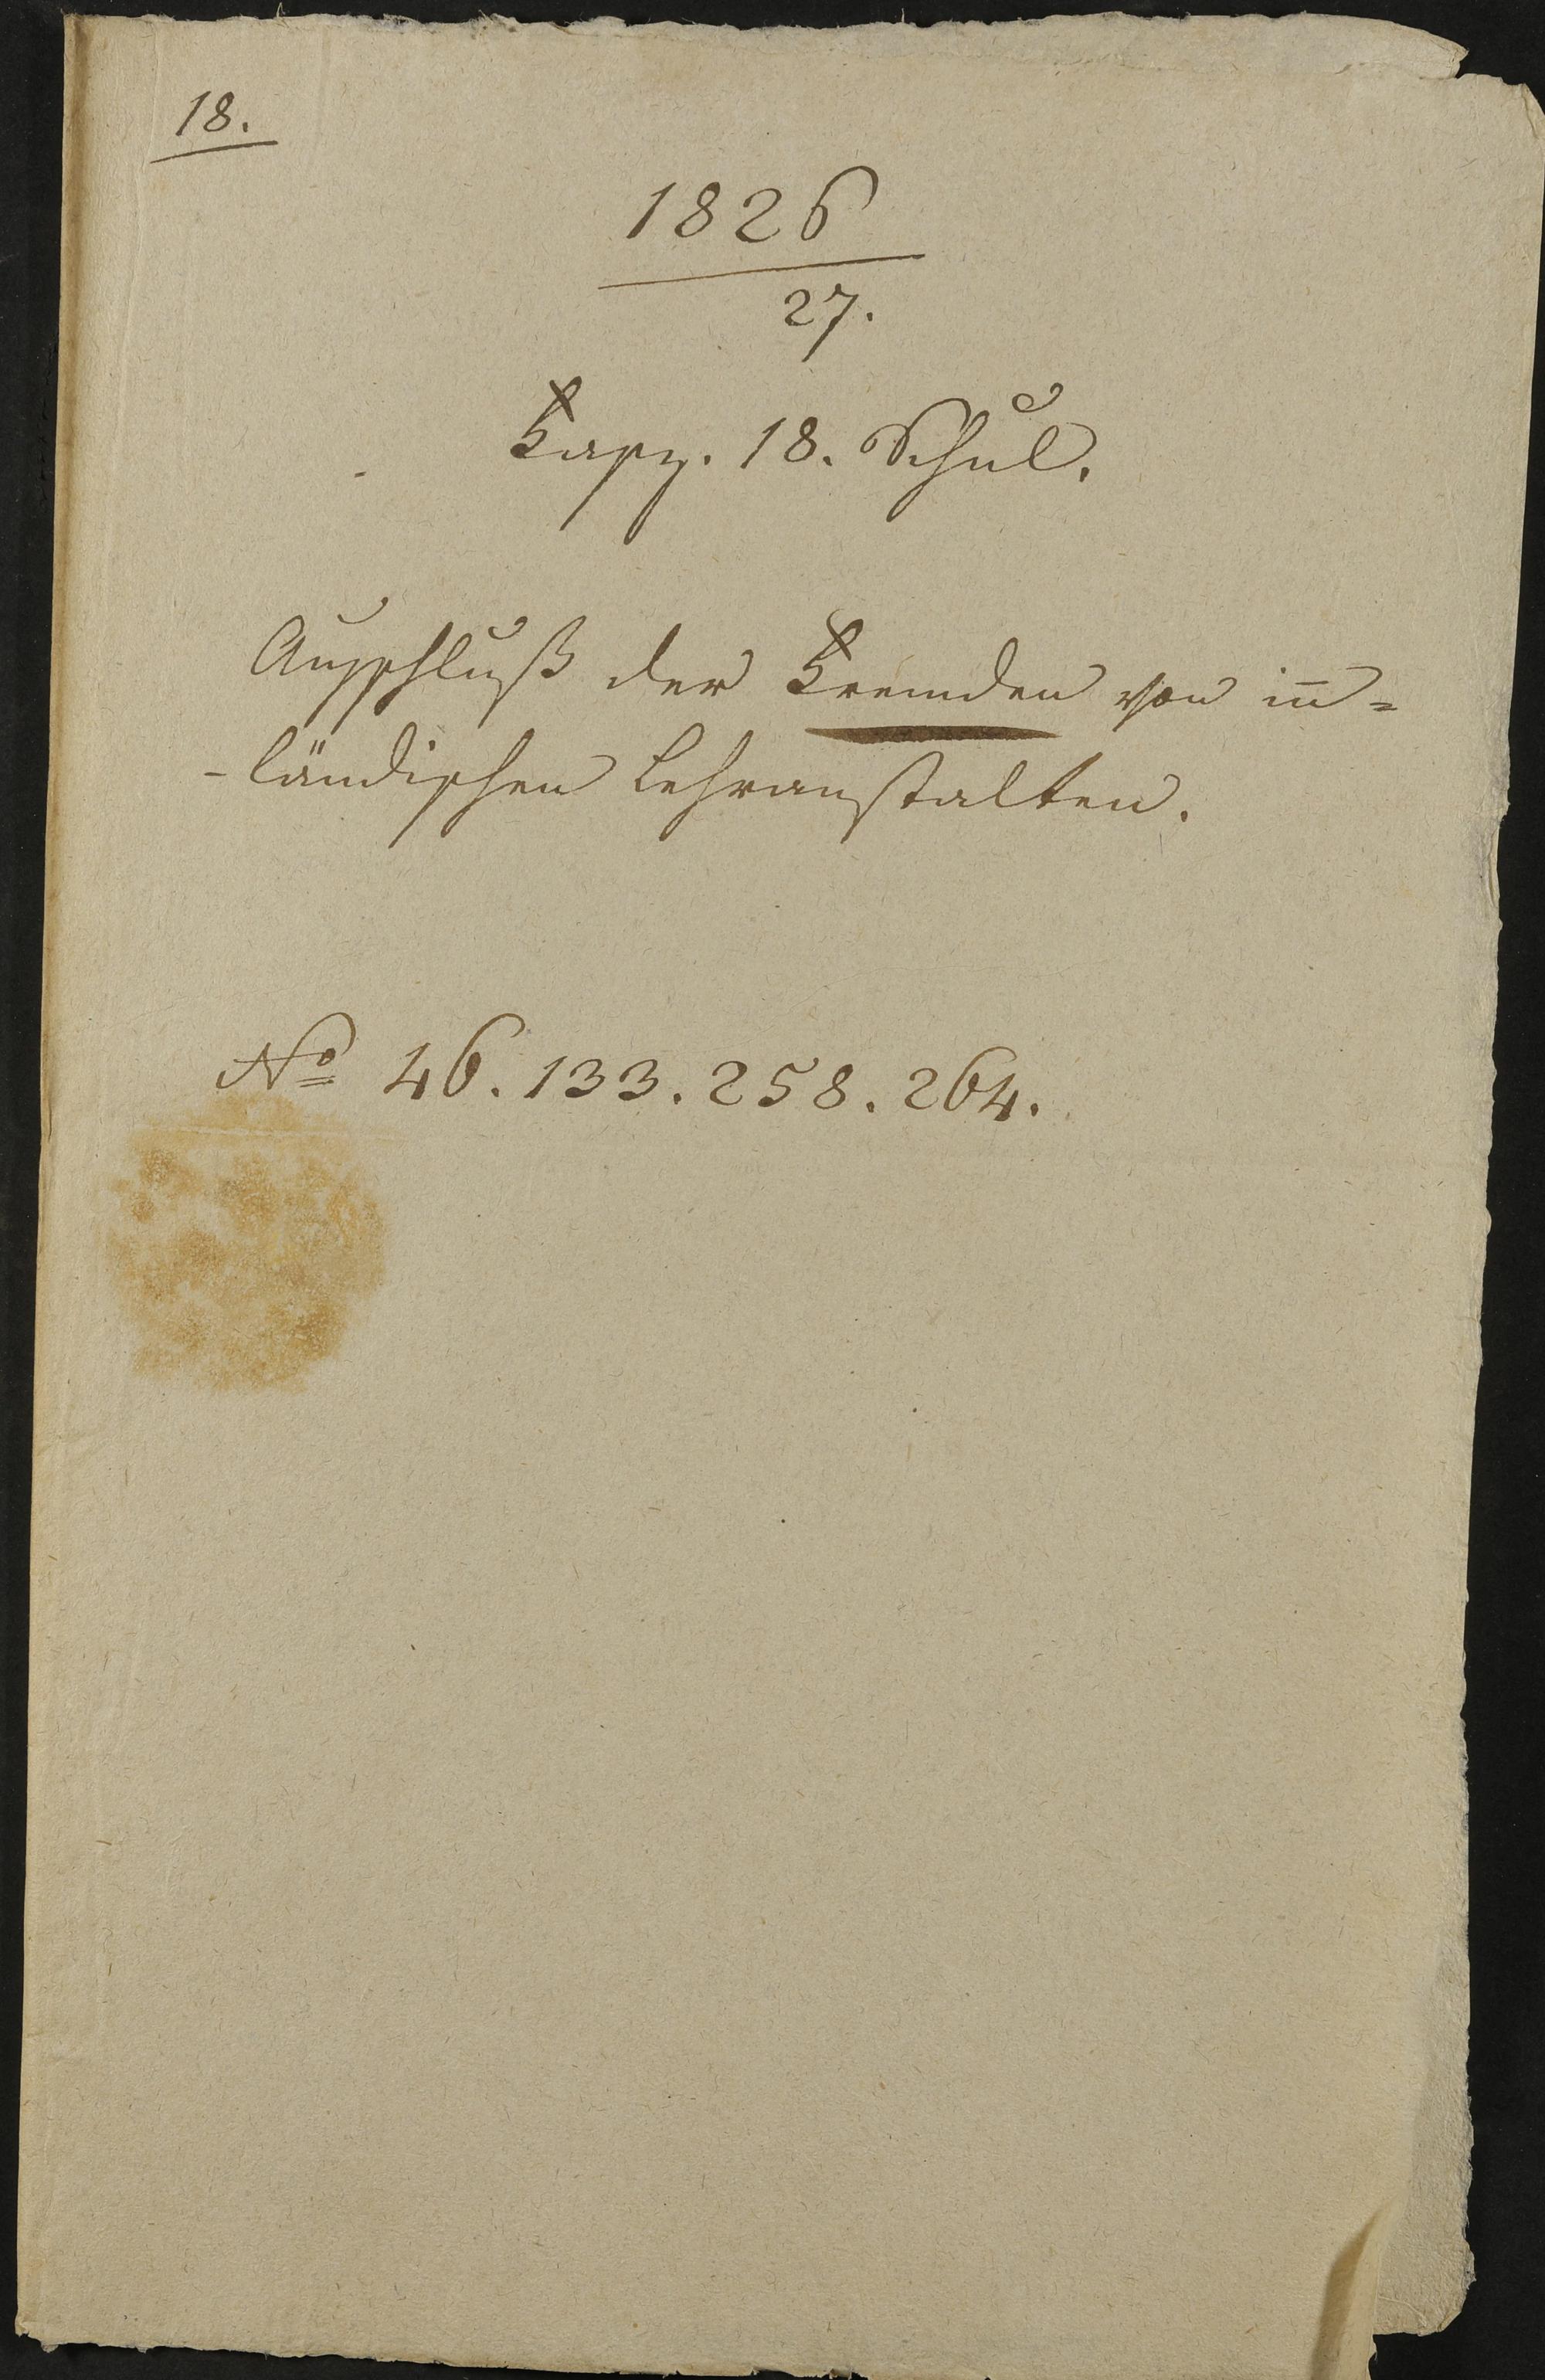 18.
1826
27.
Fasz. 18. Schul.
Ausschluß der Fremden von in=
-ländischen Lehranstalten.
No 46. 133. 258. 264.